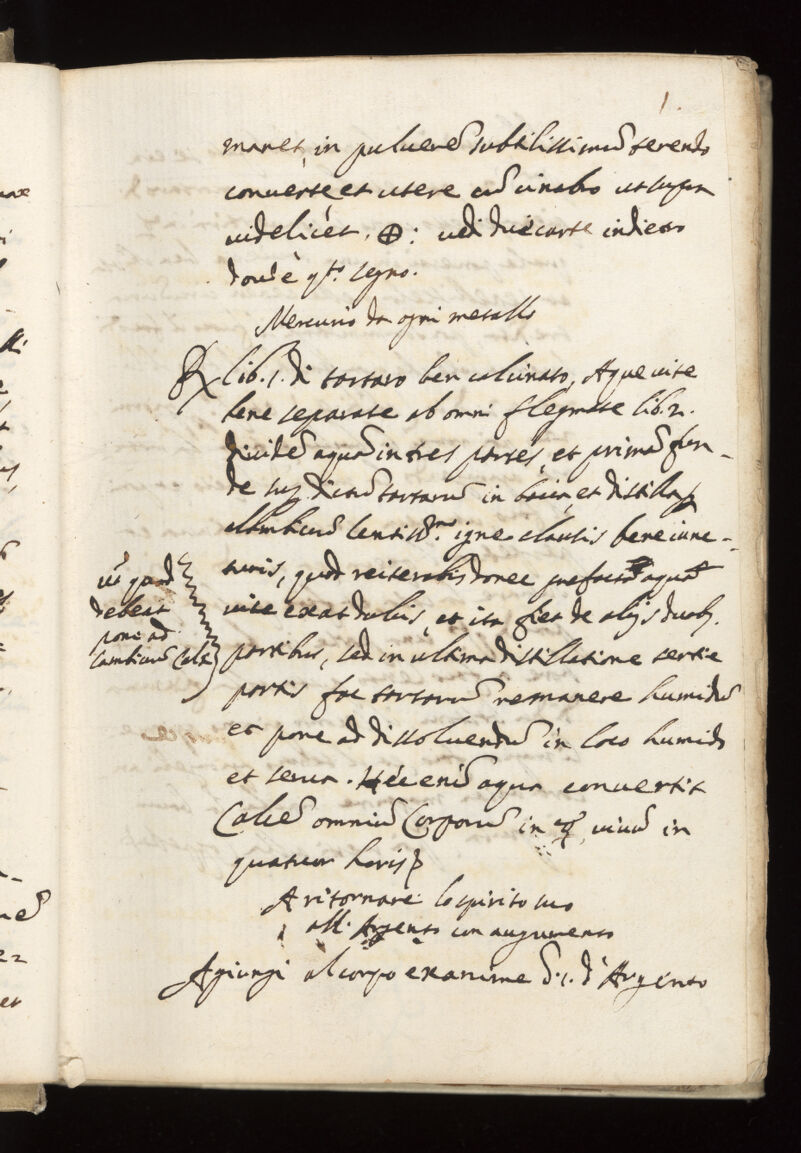 1.
manet, in puluerē subtilissimū terendo
conuerte et utere cū cinabro ut supra
uidelicet. ⊕: uedi due carte indietro
doue è q.to segno.
Mercurio da ogni metallo
℞ lib. 1. di tartaro ben calcinato, Aque uite
bene separate ab omni flegmate lib. 2.
diuide aquā in tres partes, et primā fun-
de sup dictū tartarū in bocia, et distilla p
alimbicum lentiss.mo igne clausis bene iunc-
turis, quod reiterabis donec prefactā aquā
uite exactdubis, et ita fiet de alijs duab.
partibus, sed in ultima distillatione tertie
partis fac tartarū remanere humidū
et pone ad dissoluendū in loco humido
et serua. Hec enī aqua conuertit
Calcē omniū Corporū in ☿ uiuū in
quatuor horis
uī quod
debeat
poni ad
lambicum
A ritornare lo spirito suo
all' Argento con augumento
Agiungi al corpo exanime d' Argento